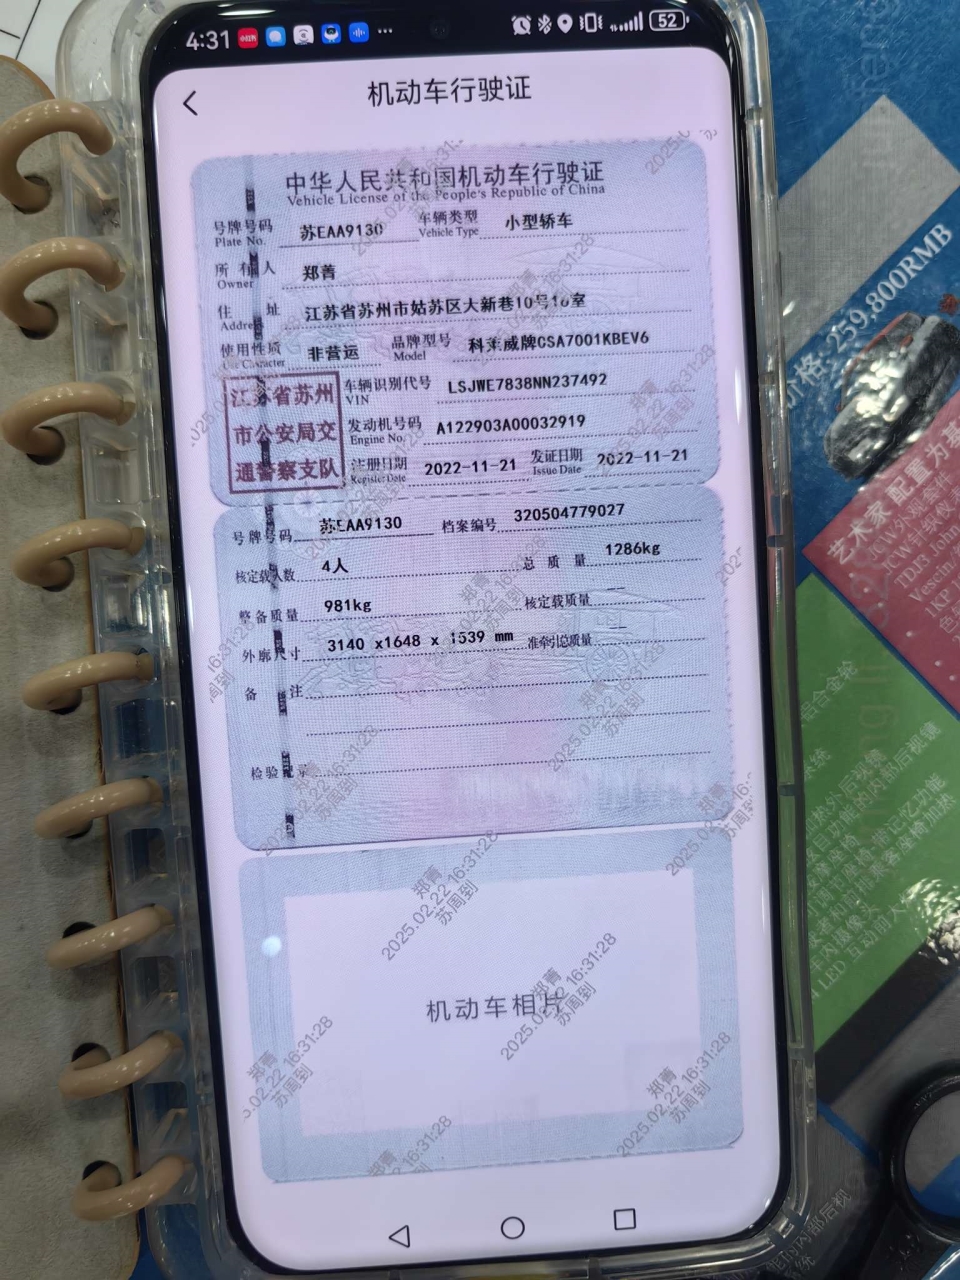 4:31
52
机动车行驶证
中华人民共和国机动车行驶证
Vehicle License of the People's Republic of China
号牌号码 苏EAA9130 车辆类型 小型轿车
Plate No. Vehicle Type
所有人 郑菁
Owner
住址 江苏省苏州市姑苏区大新巷10号16室
Address
使用性质 非营运 品牌型号 科莱威牌CSA7001KBEV6
Use Character Model
江苏省苏州
市公安局交
通警察支队
车辆识别代号 LSJWE7838NN237492
VIN
发动机号码 A122903A00032919
Engine No.
注册日期 2022-11-21 发证日期 2022-11-21
Register Date Issue Date
号牌号码 苏EAA9130 档案编号 320504779027
核定载人数 4人 总质量 1286kg
整备质量 981kg 核定载质量 --
外廓尺寸 3140 x1648 x 1539 mm 准牵引总质量 --
备注
检验记录
机动车相片
郑菁
2025.02.22 16:31:28
苏周到
价格: 259,800RMB
艺术家 配置为基
铝合金轮